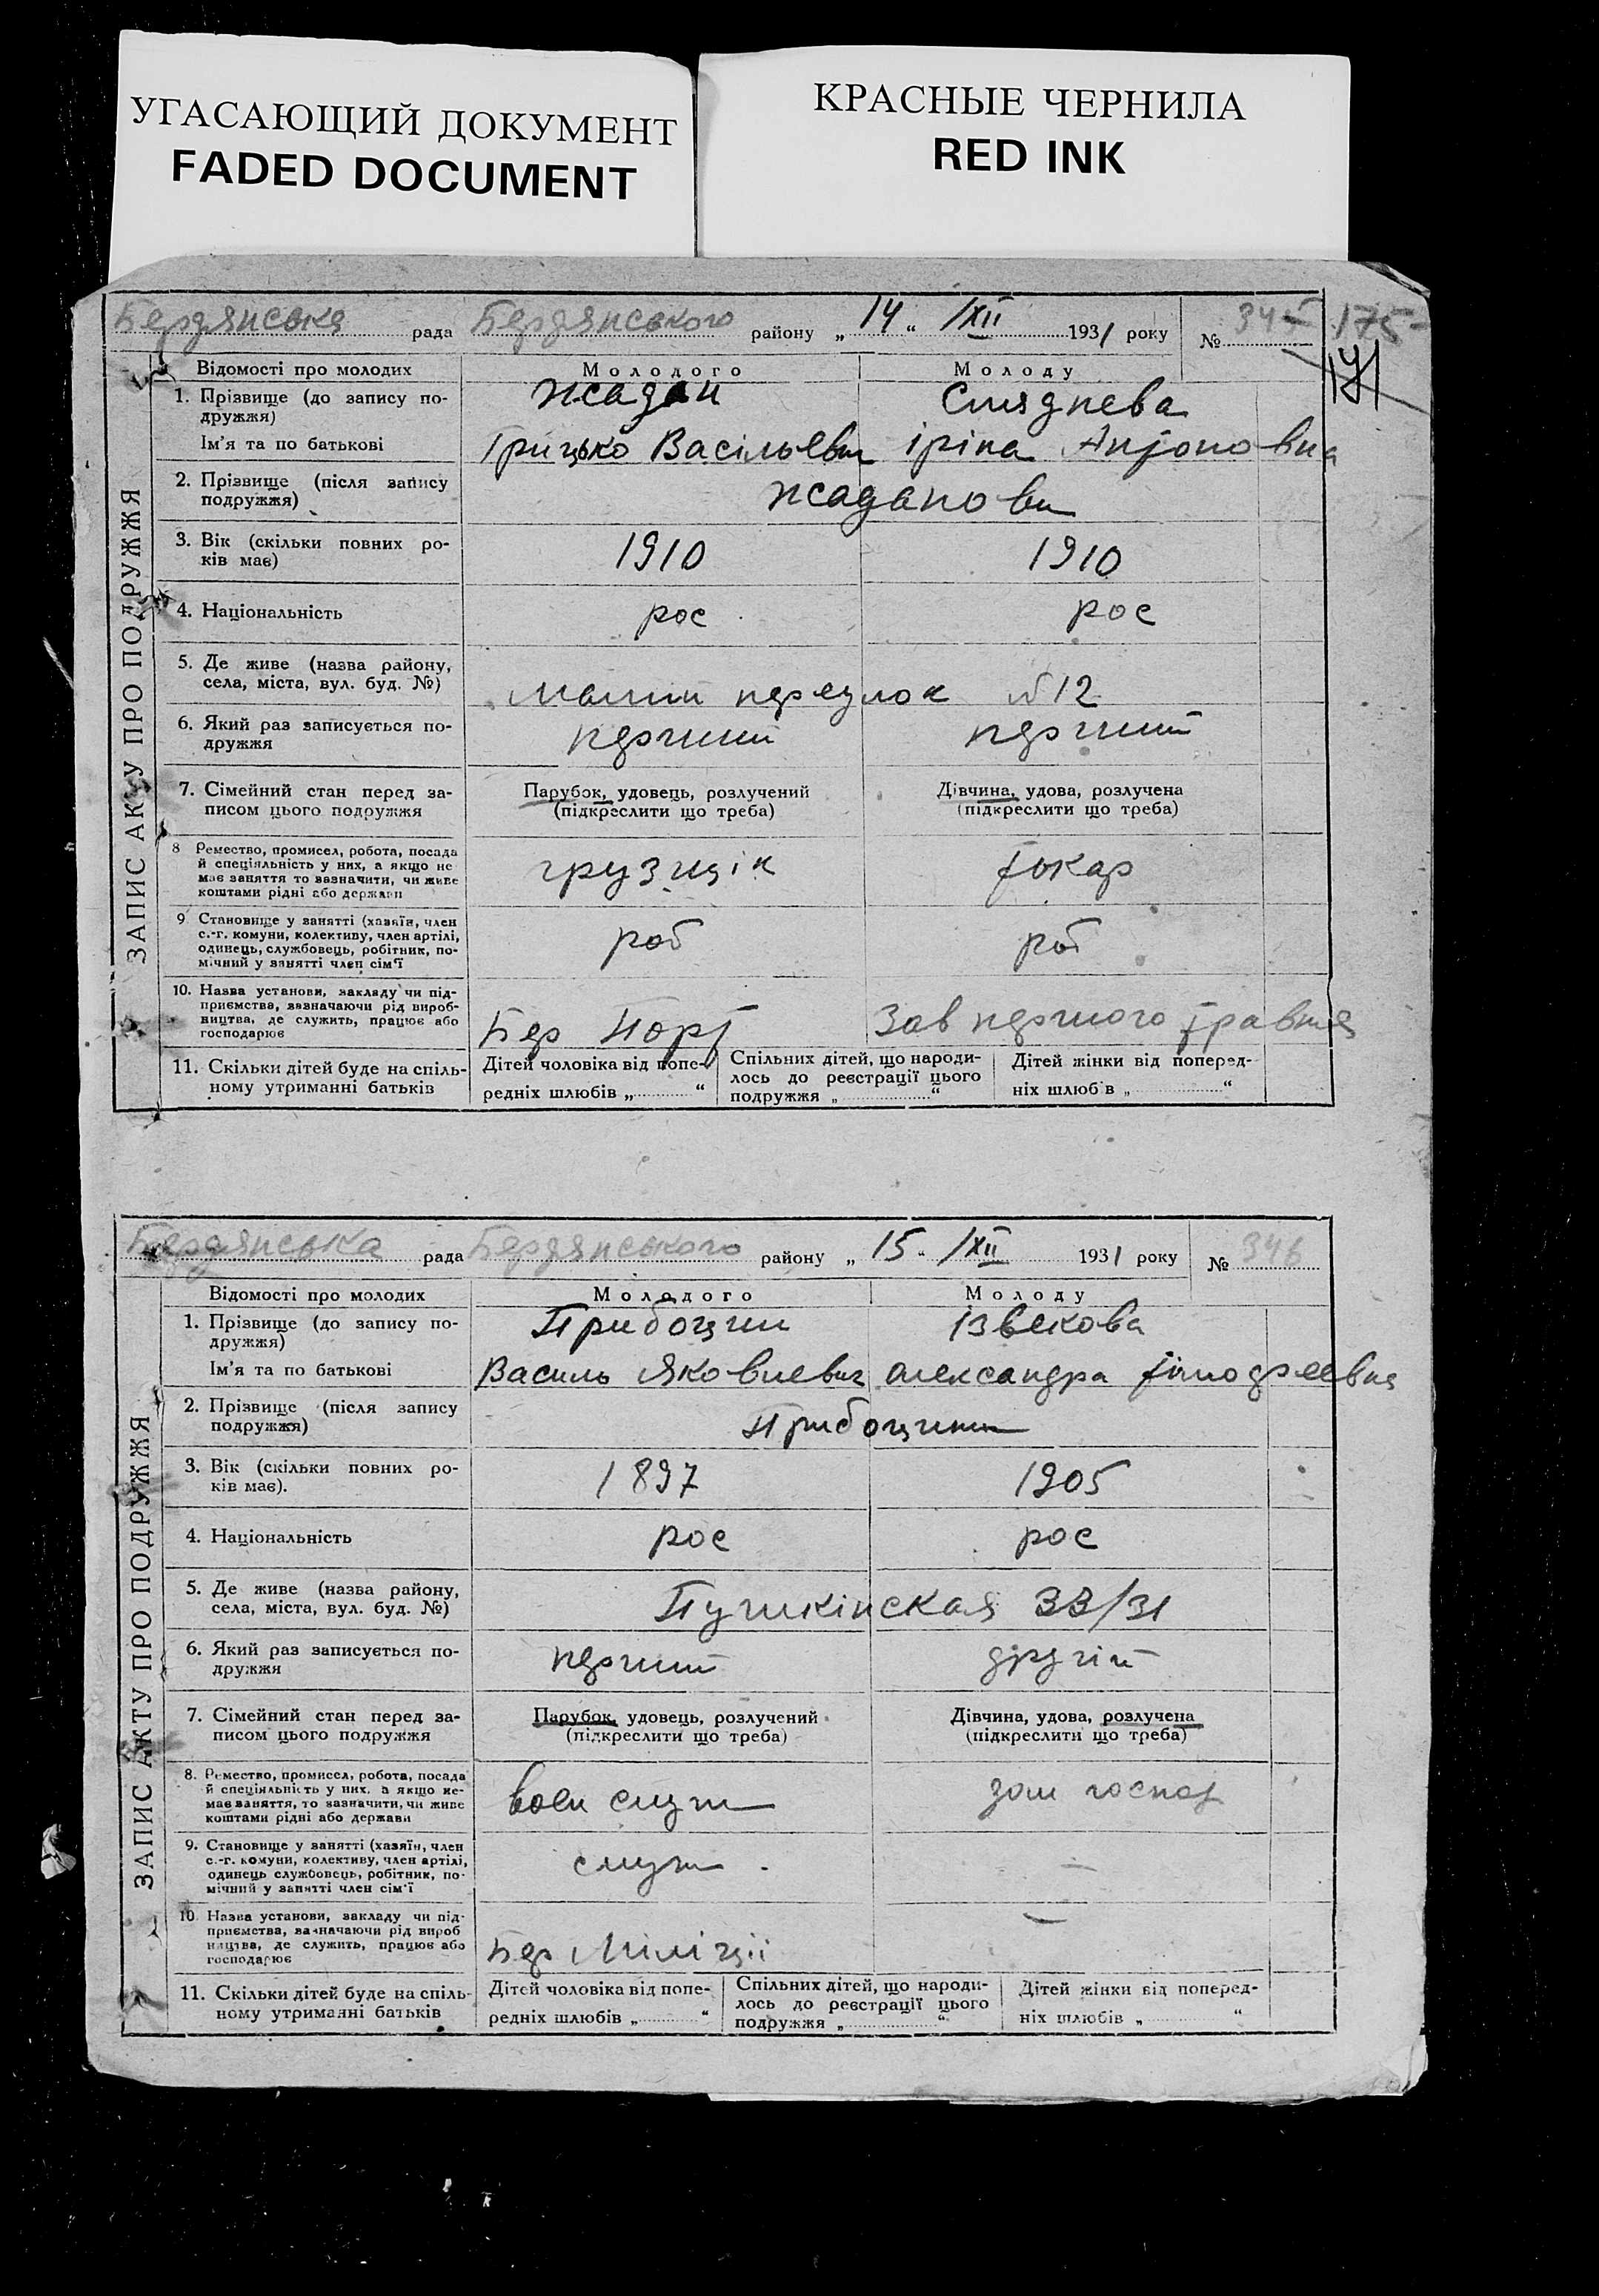 УГАСАЮЩИЙ ДОКУМЕНТ
FADED DOCUMENT
КРАСНЫЕ ЧЕРНИЛА
RED INK
Бердянська рада Бердянського району „14“ /XII 1931 року № 345 175
ЗАПИС АКТУ ПРО ПОДРУЖЖЯ
Відомості про молодих Молодого Молоду
1. Прізвище (до запису по- Жадан
дружжя)
Ім'я та по батькові Грицько Васільевич Іріна Антоновна
2. Прізвище (після запису
подружжя) Жаданови
3. Вік (скільки повних ро- 1910 1910
ків має)
4. Національність рос рос
5. Де живе (назва району,
села, міста, вул. буд. №) №12
6. Який раз записується по- перший перший
дружжя
7. Сімейний стан перед за- Парубок, удовець, розлучений Дівчина, удова, розлучена
писом цього подружжя (підкреслити що треба) (підкреслити що треба)
8 Ремество, промисел, робота, посада
й спеціяльність у них, а якщо не грузщік токар
має заняття то вазначити, чи живе
коштами рідні або держави
9 Становище у занятті (хазяїн, член
с.-г. комуни, колективу, член артілі, роб роб
одинець, службовець, робітник, по-
мічний у занятті член сім'ї
10. Назва установи, закладу чи під-
приємства, вазначаючи рід вироб-
ництва, де служить, працює або Бер Порт Зав першого травня
господарює
11. Скільки дітей буде на спіль- Дітей чоловіка від попе- Спільних дітей, що народи- Дітей жінки від поперед-
ному утриманні батьків редніх шлюбів „ “ лось до реєстрації цього ніх шлюбів „ “
подружжя „ “
Бердянська рада Бердянського району „15“ /XII 1931 року № 346
ЗАПИС АКТУ ПРО ПОДРУЖЖЯ
Відомості про молодих Молодого Молоду
1. Прізвище (до запису по- Ізвекова
дружжя)
Ім'я та по батькові Василь Яковлевич Олександра Тімофеевна
2. Прізвище (після запису
подружжя)
3. Вік (скільки повних ро- 1897 1905
ків має).
4. Національність рос рос
5. Де живе (назва району,
села, міста, вул. буд. №) Пушкінская 33/31
6. Який раз записується по- перший другій
дружжя
7. Сімейний стан перед за- Парубок, удовець, розлучений Дівчина, удова, розлучена
писом цього подружжя (підкреслити що треба) (підкреслити що треба)
8. Ремество, промисел, робота, посада
й спеціяльність у них, а якщо не- служ госпор
має заняття, то зазначити, чи живе
коштами рідні або держави
9. Становище у занятті (хазяїн, член
с.-г. комуни, колективу, член артілі, служ —
одинець службовець, робітник, по-
мічний у занятті член сім'ї
10. Назва установи, закладу чи під-
приємства, вазначаючи рід вироб
ництва, де служить, працює або Бер Міліції —
господарює
11. Скільки дітей буде на спіль- Дітей чоловіка від попе- Спільних дітей, що народи- Дітей жінки від поперед-
ному утриманні батьків редніх шлюбів „ “ лось до реєстрації цього ніх шлюбів „ “
подружжя „ “